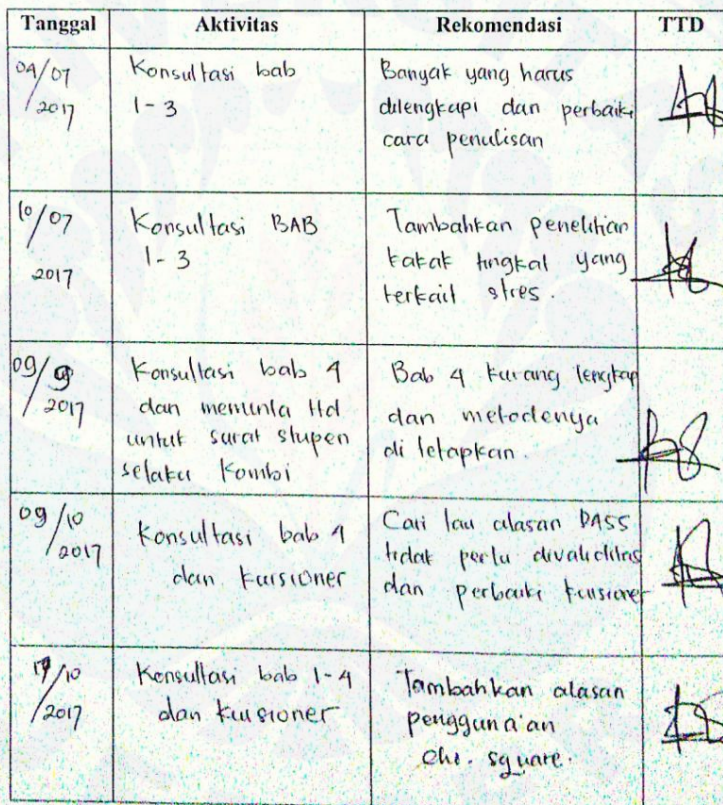 Tanggal Aktivitas Rekomendasi TTD
04/07
2017
Konsultasi bab
1-3
Banyak yang harus
dilengkapi dan perbaiki
cara penulisan
10/07
2017
Konsultasi BAB
1-3
Tambahkan penelitian
kakak tingkat yang
terkait stres.
09/9
2017
Konsultasi bab 4
dan meminta ttd
untuk surat stupen
selaku Kombi
Bab 4 kurang lengkap
dan metodenya
di tetapkan.
09/10
2017
Konsultasi bab 4
dan kuisioner
Cari lau alasan DASS
tidak perlu divaliditas
dan perbaiki kuisioner
17/10
2017
Konsultasi bab 1-4
dan kuisioner
Tambahkan alasan
pengguna'an
chi. square.